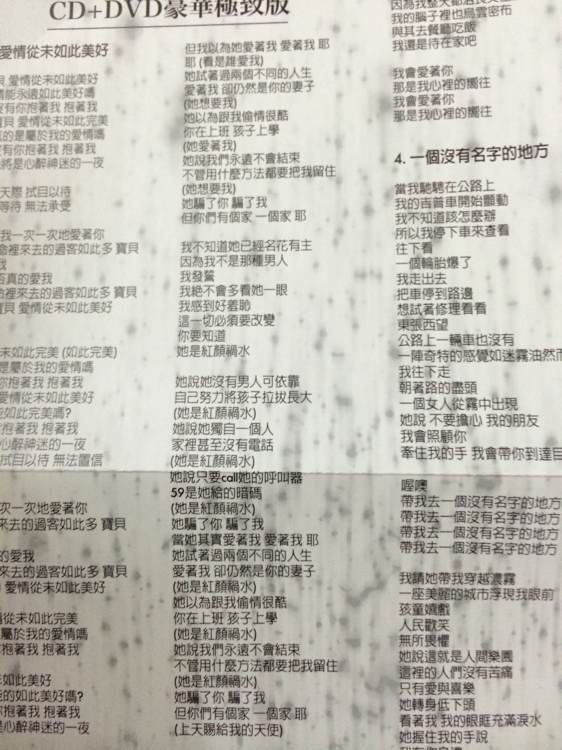 CD+DVD豪華極致版
愛情從未如此美好
愛情從未如此美好
情能永遠如此美好嗎
有你抱著我 抱著我
寶貝 愛情從未如此完美
真的是屬於我的愛情嗎
有你抱著我 抱著我
將是心醉神迷的一夜
天際 拭目以待
等待 無法承受
我一次一次地愛著你
命裡來去的過客如此多 寶貝
我
否真的愛我
命裡來去的過客如此多 寶貝
寶貝 愛情從未如此美好
未如此完美 (如此完美)
是屬於我的愛情嗎
你抱著我 抱著我
愛情從未如此美好
如此完美嗎?
你抱著我 抱著我
心醉神迷的一夜
拭目以待 無法置信
次一次地愛著你
來去的過客如此多 寶貝
的愛我
來去的過客如此多 寶貝
愛情從未如此美好
從未如此完美
屬於我的愛情嗎
抱著我 抱著我
如此美好
的如此美好嗎?
抱著我 抱著我
心醉神迷的一夜
但我以為她愛著我 愛著我 耶
耶 (看是誰愛我)
她試著過兩個不同的人生
愛著我 卻仍然是你的妻子
(她想要我)
她以為跟我偷情很酷
你在上班 孩子上學
(她愛著我)
她說我們永遠不會結束
不管用什麼方法都要把我留住
(她想要我)
她騙了你 騙了我
但你們有個家 一個家 耶
我不知道她已經名花有主
因為我不是那種男人
我發誓
我絕不會多看她一眼
我感到好羞恥
這一切必須要改變
你要知道
她是紅顏禍水
她說她沒有男人可依靠
自己努力將孩子拉拔長大
(她是紅顏禍水)
她說她獨自一個人
家裡甚至沒有電話
(她是紅顏禍水)
她說只要call她的呼叫器
59是她給的暗碼
(她是紅顏禍水)
她騙了你 騙了我
當她其實愛著我 愛著我 耶
她試著過兩個不同的人生
愛著我 卻仍然是你的妻子
(她是紅顏禍水)
她以為跟我偷情很酷
你在上班 孩子上學
(她是紅顏禍水)
她說我們永遠不會結束
不管用什麼方法都要把我留住
(她是紅顏禍水)
她騙了你 騙了我
但你們有個家 一個家 耶
(上天賜給我的天使)
我的腦子裡也烏雲密布
與其去餐廳吃飯
我還是待在家吧
我會愛著你
那是我心裡的嚮往
我會愛著你
那是我心裡的嚮往
4. 一個沒有名字的地方
當我馳騁在公路上
我的吉普車開始顫動
我不知道該怎麼辦
所以我停下車來查看
往下看
一個輪胎爆了
我走出去
把車停到路邊
想試著修理看看
東張西望
公路上一輛車也沒有
一陣奇特的感覺如迷霧油然而
我往下走
朝著路的盡頭
一個女人從霧中出現
她說 不要擔心 我的朋友
我會照顧你
牽住我的手 我會帶你到達目
喔噢
帶我去一個沒有名字的地方
帶我去一個沒有名字的地方
帶我去一個沒有名字的地方
帶我去一個沒有名字的地方
我請她帶我穿越濃霧
一座美麗的城市浮現我眼前
孩童嬉戲
人民歡笑
無所畏懼
她說這就是人間樂園
這裡的人們沒有苦痛
只有愛與喜樂
她轉身低下頭
看著我 我的眼眶充滿淚水
她握住我的手說